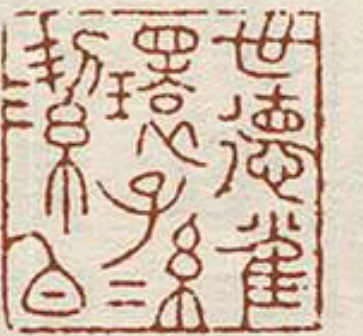 世德雀
環子孫
潔白